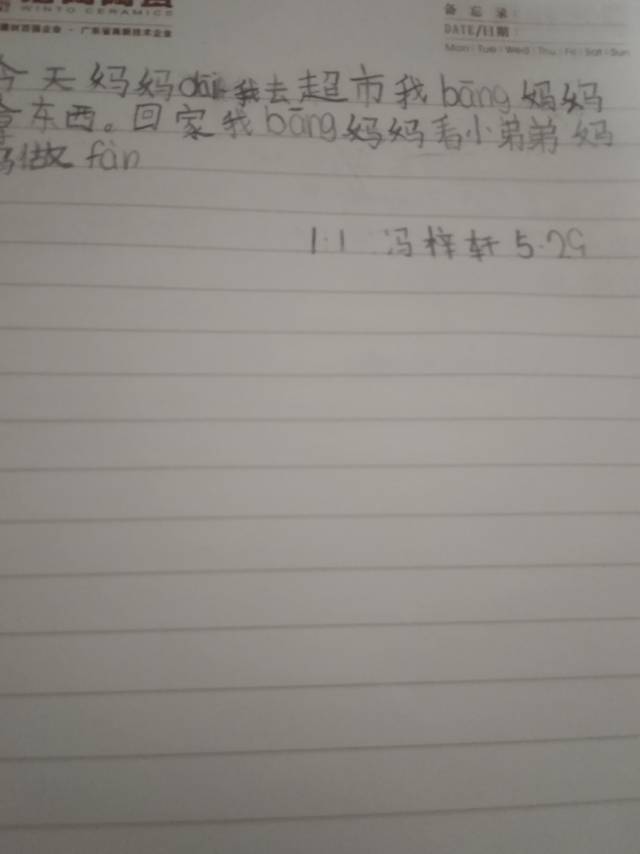 WINTO CERAMICS
备忘录:
DATE/日期:
Mon Tue Wed Thu Fri Sat Sun
今天妈妈dài我去超市我bāng妈妈
拿东西。回家我bāng妈妈看小弟弟妈
妈做fàn
1.1 冯梓轩 5.29